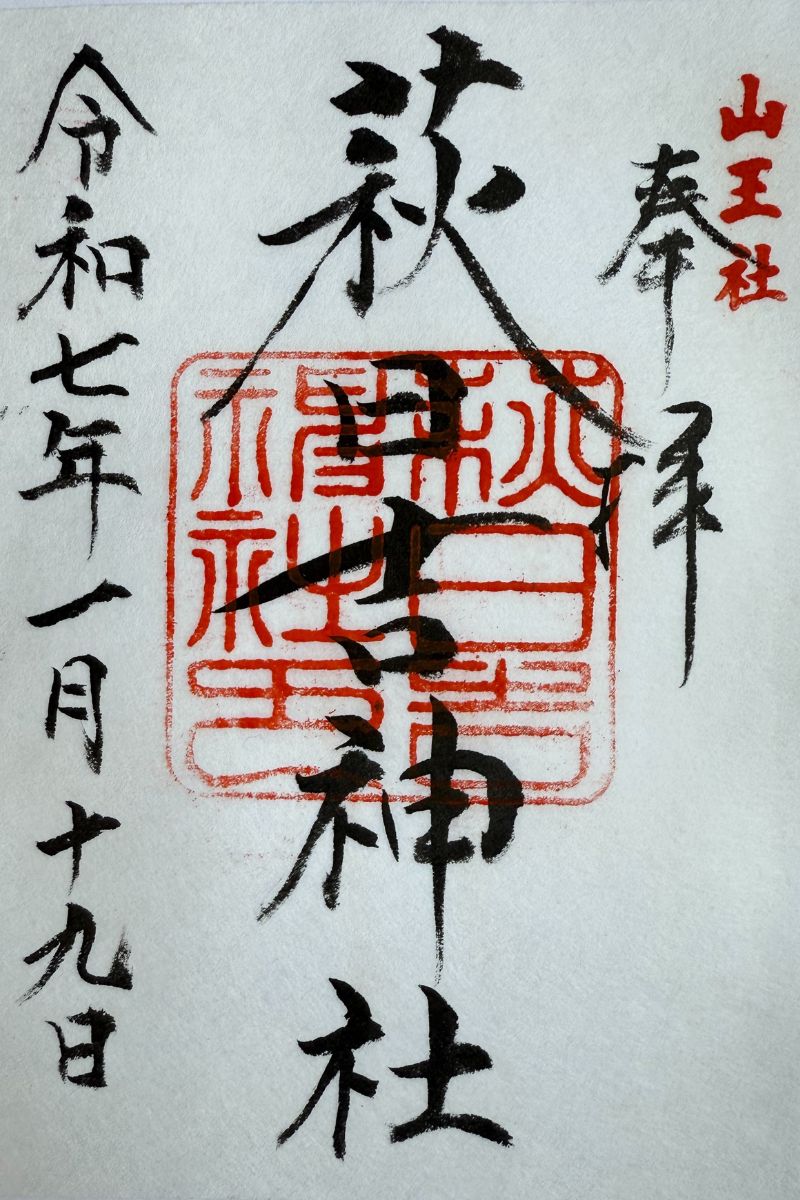 山王社
奉拝
萩日吉神社
令和七年一月十九日